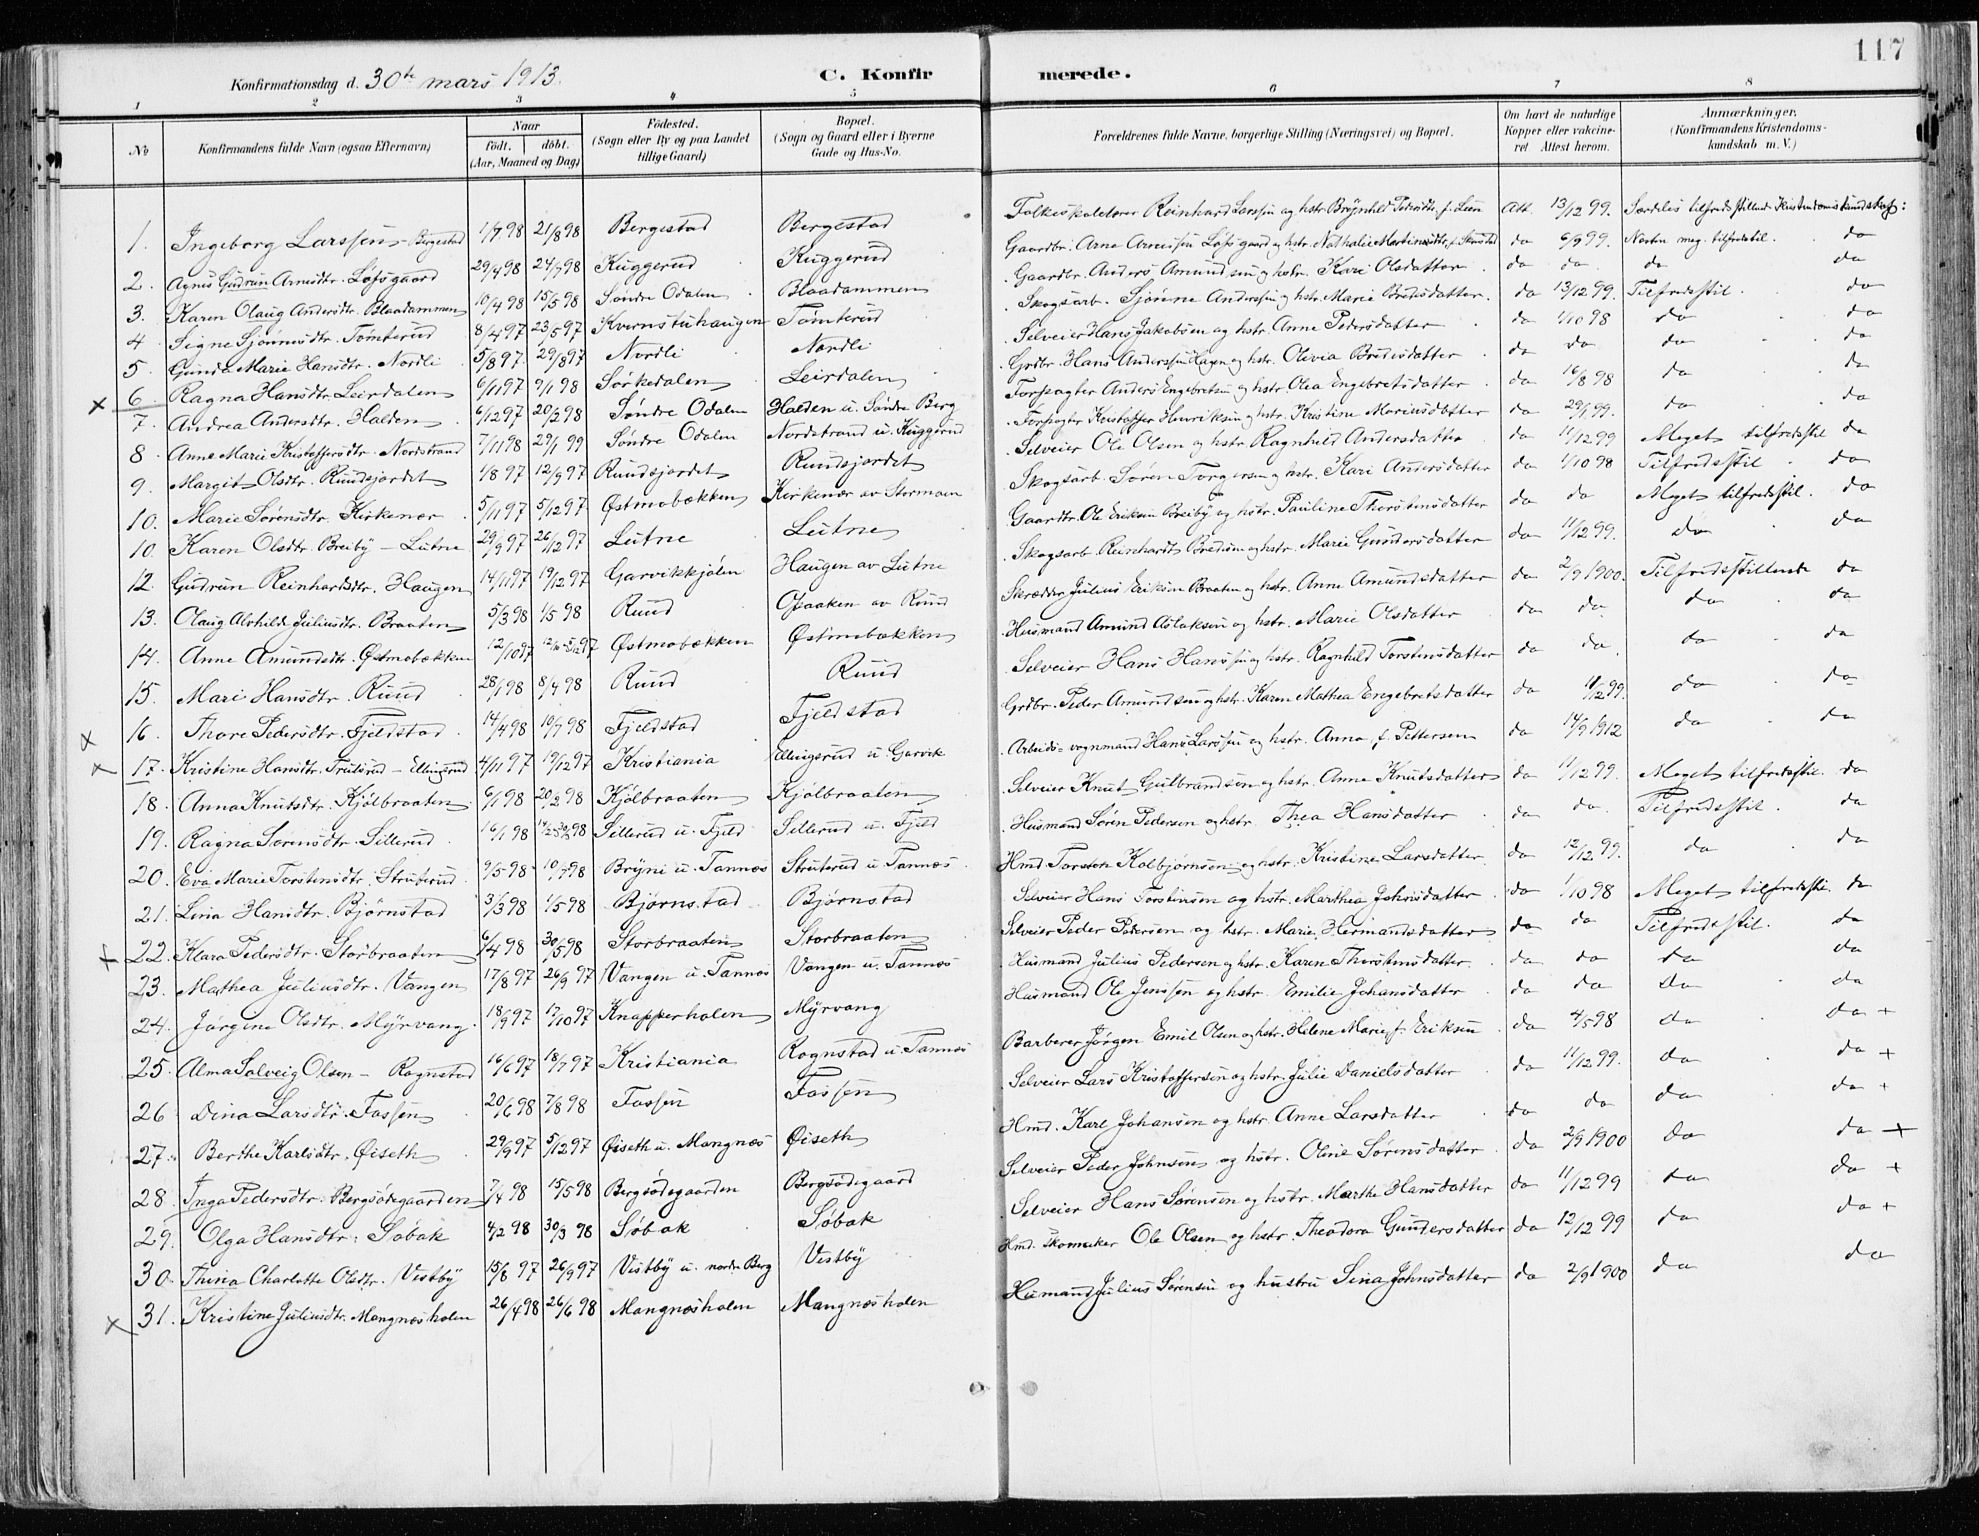 117
Konfirmationsdag d. 30te mars 1913. C. Konfirmerede.
1 2 3 4 5 6 7 8
No Konfirmandens fulde Navn (ogsaa Efternavn) Naar født. døbt. (Aar, Maaned og Dag) Fødested. (Sogn eller By og paa Landet tillige Gaard) Bopæl. (Sogn og Gaard eller i Byerne Gade og Hus-No. Forældrenes fulde Navne, borgerlige Stilling (Næringsvei) og Bopæl. Om havt de naturlige Kopper eller vakcineret Attest herom. Anmærkninger. (Konfirmandens Kristendomskundskab m. V.)
1. Ingeborg Larssen - Bergestad 1/7 98 21/8 98 Bergestad Bergestad Folkeskolelærer Reinhard Larssen og hstr Brynhild Pedersdtr. f. Att. 13/12 99. Særdeles tilfredsstillend Kristendomskundskap:
2. Agnes Gudrun Arnesdtr. Løfsgaard 29/4 98 24/7 98 Kuggerud Kuggerud Gaardbr. Arne Arnessen Løfsgaard og hstr. Nathalie Martinsdtr, f. Skrustad da 6/9 99. Næsten meg. tilfredstil. da
3. Karen Olaug Andersdtr. Blaadammen 10/4 98 15/5 98 Søndre Odalen Blaadammen Gaardbr. Anders Amundsen og hstr. Kari Olsdatter da da da da
4 Signe Sjønnesdtr. Tømterud 8/4 97 23/5 97 Kvernstuhaugen Tømterud Skogsarb. Sjønne Anderssen og hstr. Marie Bredesdatter. da 13/12 99. Tilfredsstil. da
5. Gunda Marie Hansdtr. Nordli 5/8 97. 29/8 97 Nordli Nordli Selveier Hans Jakobsen og hstr. Anne Pedersdatter da 1/10 98 da da
6. Ragna Hansdtr. Leirdalen 6/11 97 9/1 98 Sørkedalen Leirdalen Grdbr. Hans Anderssen Hagen og hstr. Olivia Bredesdatter da da da da
7. Andrea Andersdtr. Halden 6/12 97 20/3 98 Søndre Odalen Halden u. Søndre Berg Forpagter Anders Engebretsen og hstr. Olea Engebretsdatter da 16/8 98 da da
8. Anne Marie Kristoffersdtr. Nordstrand 7/11 98 29/1 99 Søndre Odalen Nordstrand u. Kuggerud Forpagter Kristoffer Henriksen og hstr. Kristine Mariusdatter da 29/1 99. da da
9. Margit Olsdtr. Ruudsjordet 1/8 97 12/9 97 Ruudsjordet Ruudsjordet Selveier Ole Olsen og hstr Ragnhild Andersdatter da 11/12 99 Meget tilfredsstil da
10. Marie Sørensdtr. Kirkenær 5/11 97 5/12 97. Østmobækken Kirkenær av Stormoen Skogsarb. Søren Torgersen og hstr. Kari Andersdatter da 1/10 98 Tilfredsstil da
10. Karen Olsdtr. Breiby - Lutne 29/9 97 26/12 97 Lutne Lutne Gaardbr. Ole Eriksen Breiby og hstr. Pauline Thorstensdatter da da Meget tilfredsstil. da
12. Gudrun Reinhardtsdtr. Haugen 14/11 97 19/12 97 Garvikkjølen Haugen av Lutne Skogsarb. Reinhardt Bredesen og hstr. Marie Gundersdatter da 11/12 99. da da
13. Olaug Alvhild Juliusdtr. Braaten 5/3 98 1/5 98 Ruud Opaaken av Ruud Skrædder Julius Eriksen Braaten og hstr. Anne Amundsdatter da 2/9 1900. Tilfredsstillende da
14. Anne Amundsdtr. Østmobækken 12/10 97 Østmobækken Østmobækken Husmand Amund Aslaksen og hstr. Marie Olsdatter da da da da
15. Mari Hansdtr. Ruud 28/1 98 8/4 98 Ruud Ruud Selveier Hans Hanssen og hstr. Ragnhild Torstensdatter da da. da da
16. Thore Pedersdtr. Fjeldstad 14/4 98 10/7 98 Fjeldstad Fjeldstad Grdbr. Peder Amundsen og hstr. Karen Mathea Engebretsdatter da 11/12 99. da da
17. Kristine Hansdtr. Trulsrud - Ellingsrud 4/11 97 19/12 97 Kristiania Ellingsrud u. Garvik Arbeids-vognmand Hans Larssen og hstr. Anna f. Pettersen da 14/9 1912 da da
18. Anna Knutsdtr. Kjølbraaten 6/1 98 20/2 98 Kjølbraaten Kjølbraaten Selveier Knut Gulbrandsen og hstr. Anne Knutsdatter da 11/12 99. Meget tilfredsstil. da
19. Ragna Sørensdtr. Sillerud 16/1 98 Sillerud u. Fjeld Sillerud u. Fjeld Husmand Søren Pedersen og hstr. Thea Hansdatter da da. Tilfredsstil. da
20. Eva Marie Torstensdtr. Struterud 9/5 98 10/7 98 Bryni u. Tannæs Struterud u. Tannæs Hmd. Torsten Kolbjørnsen og hstr. Kristine Larsdatter da 12/12 99. da da
21. Lina Hansdtr. Bjørnstad 3/3 98 1/5 98 Bjørnstad Bjørnstad Selveier Hans Torstensen og hstr. Marthea Johnsdatter da 1/10 98 Meget tilfredsstil. da
22. Klara Pedersdtr. Storbraaten 6/4 98 30/5 98 Storbraaten Storbraaten Selveier Peder Pedersen og hstr. Marie Hermansdatter da da Tilfredsstil. da
23. Mathea Juliusdtr. Vangen 17/8 97 26/9 97 Vangen u. Tannæs Vangen u. Tannæs Husmand Julius Pedersen og hstr. Karen Thorstensdatter da da da da
24. Jørgine Olsdtr. Myrvang 18/9 97 17/10 97 Knapperholen Myrvang Husmand Ole Jenssen og hstr. Emilie Johansdatter da da da da
25. Alma Solveig Olsen - Rognstad 16/6 97 18/7 97 Kristiania Rognstad u. Tannæs Barberer Jørgen Emil Olsen og hstr. Helene Marie, f. Eriksen da 4/5 98 da da +
26 Dina Larsdtr. Fossen 20/6 98 7/8 98 Fossen Fossen Selveier Lars Kristoffersen og hstr. Julie Danielsdatter da 11/12 99. da da +
27. Berthe Karlsdtr. Øiseth 29/9 97 5/12 97 Øiseth u. Mangnæs Øiseth Hmd. Karl Johansen og hstr. Anne Larsdatter da da da da +
28. Inga Pedersdtr. Bergsødegaarden 7/4 98 15/5 98 Bergsødegaarden Bergsødegaard Selveier Peder Johnsen og hstr. Oline Sørensdatter da 2/9 1900 da da +
29. Olga Hansdtr. Søbak 4/2 98 30/3 98 Søbak Søbak Selveier Hans Sørensen og hstr. Marthe Hansdatter da 11/12 99 da da +
30. Thina Charlotte Olsdtr. Vestby 15/8 97 26/9 97 Vestby u. nordre Berg Vestby Hmd. Skomaker Ole Olsen og hstr. Theodora Gundersdatter da 12/12 99 da da +
31. Kristine Juliusdtr. Mangnæsholen 26/4 98 26/6 98 Mangnæsholen Mangnæsholen Husmand Julius Sørensen og hustru Lina Johnsdatter da 2/9 1900 da da